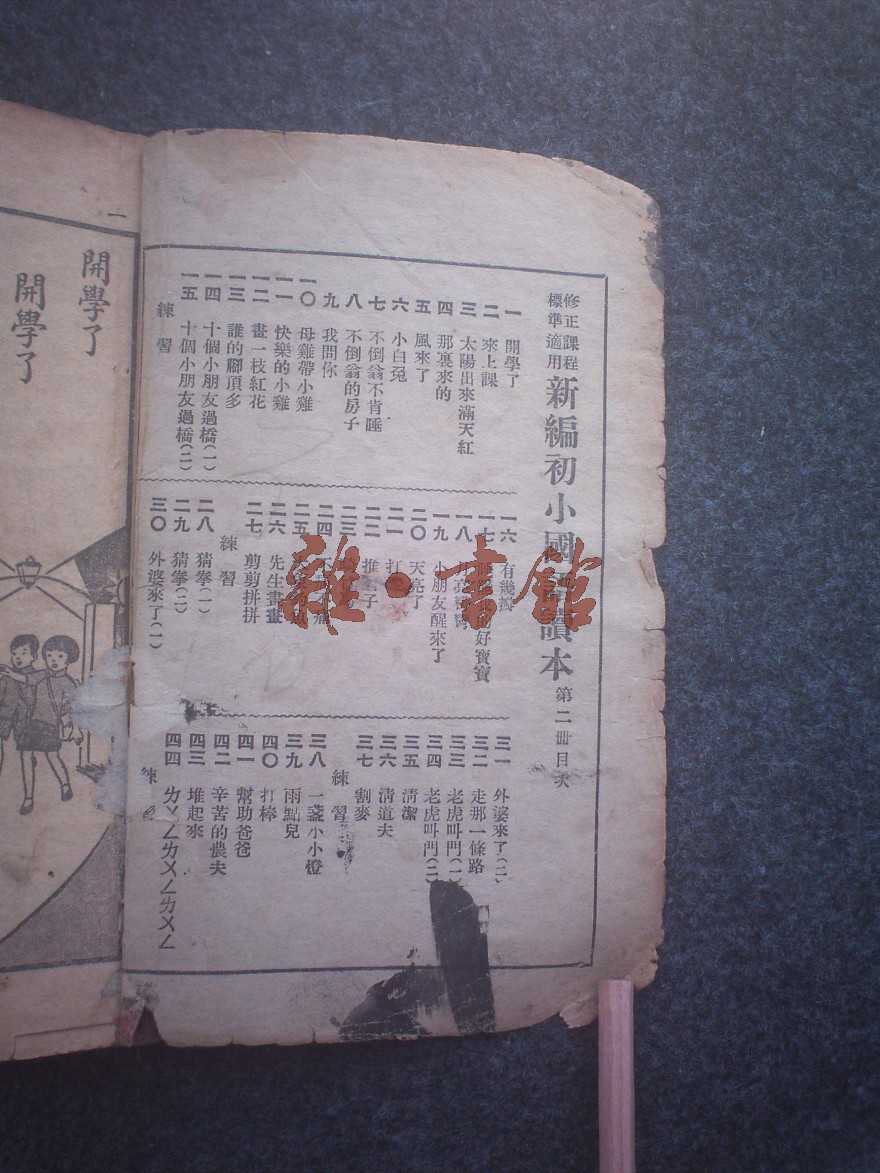 修正課程
標準適用
新編初小國語讀本 第二冊目次
一 開學了
二 來上課
三 太陽出來滿天紅
四 那裏來的
五 風來了
六 小白兔
七 不倒翁不肯睡
八 不倒翁的房子
九 我問你
一〇 母雞帶小雞
一一 快樂的小雞
一二 畫一枝紅花
一三 誰的腳頂多
一四 十個小朋友過橋(一)
一五 十個小朋友過橋(二)
練習
一六 有幾瓣
一七 好寶寶
一八
一九 小朋友醒來了
二〇 天亮了
二一 打
二二 推 子
二三
二四 不
二五
二六 先生畫畫
二七 剪剪拼拼
練習
二八 猜拳(一)
二九 猜拳(二)
三〇 外婆來了(一)
三一 外婆來了(二)
三二 走那一條路
三三 老虎叫門(一)
三四 老虎叫門(二)
三五 清潔
三六 清道夫
三七 割麥
練習
三八 一盞小小燈
三九 雨點兒
四〇 打棒
四一 幫助爸爸
四二 辛苦的農夫
四三 堆起來
四四 ㄌㄨㄥㄌㄨㄥㄌㄨㄥ
練習
一
開學了
開學了
雜·書館